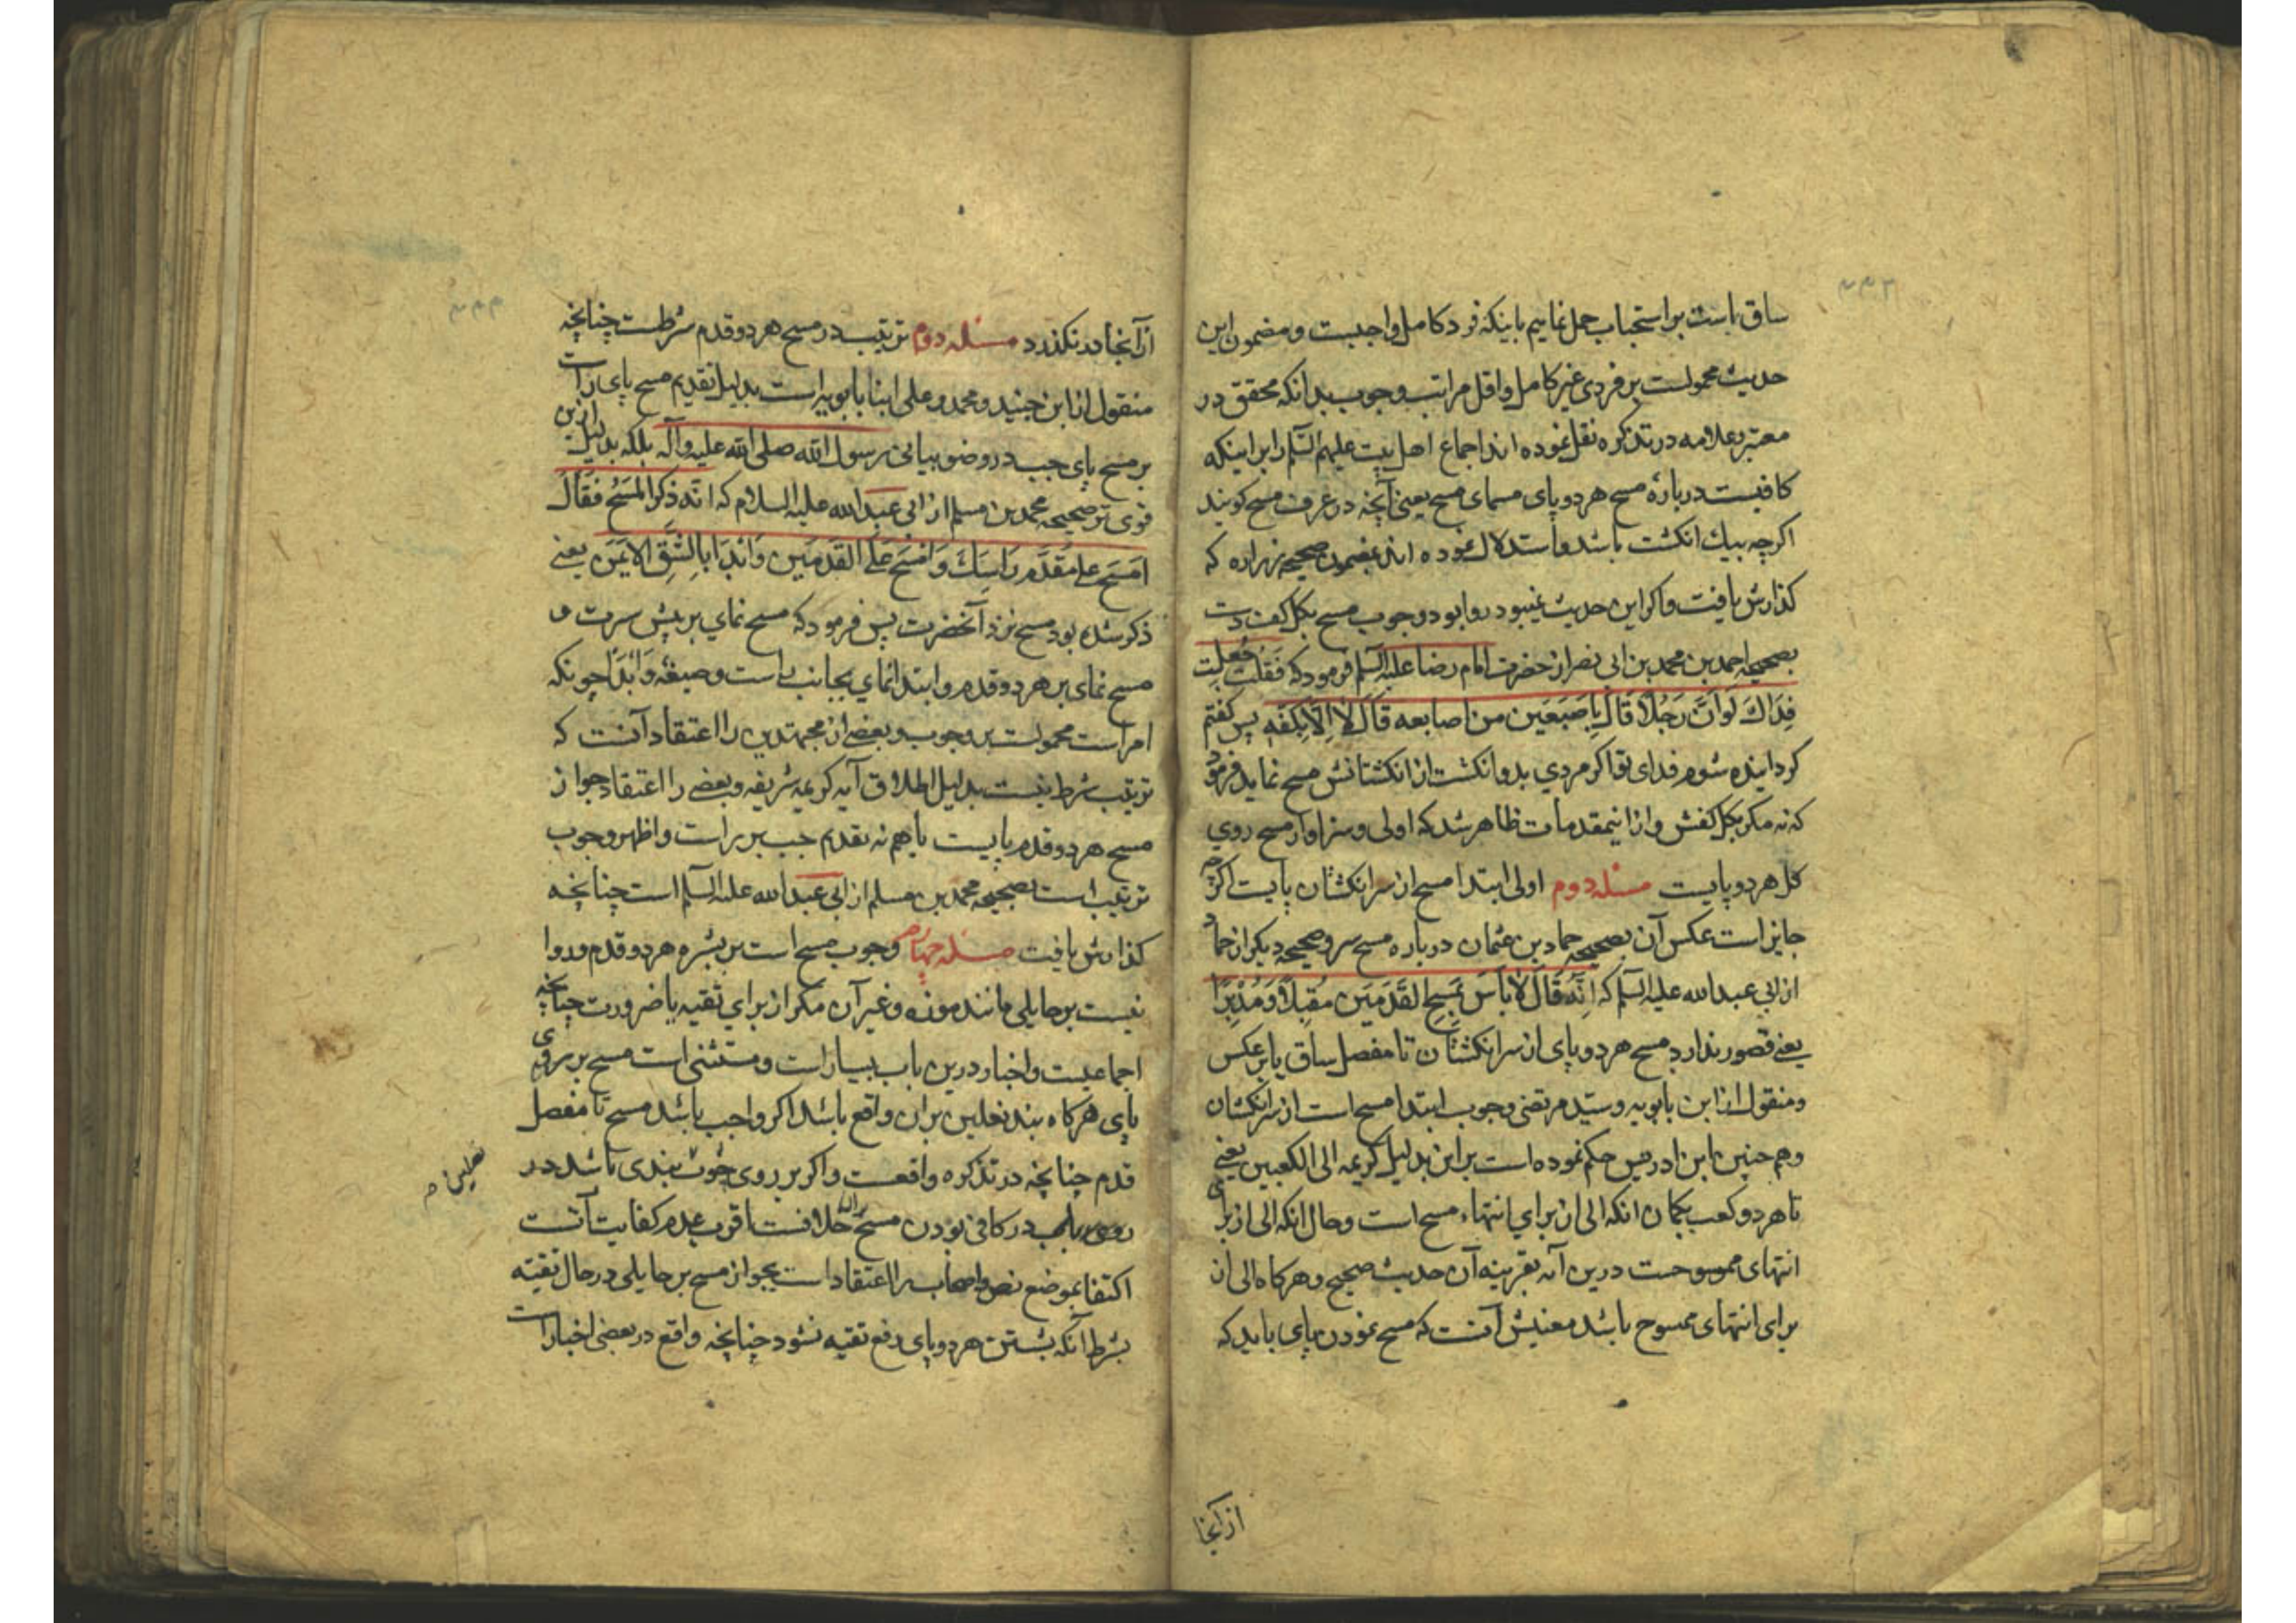 ساق پاست براستحباب حمل نماییم بااینکه فرد کامل واجبست ومضمون این
حدیث محمولست برفردی غیرکامل واقل مراتب وجوب بدانکه محقق در
معتبر وعلامه در تذکره نقل نموده اند اجماع اهل بیت علیهم السّلم را براینکه
کافیست درباره مسح هر دو پای مسمای مسح یعنی آنچه در عرف مسح کویند
اکرچه بیك انکشت باشد واستدلال نموده اند بمضمون صحیحه زراره که
کذارش یافت واکر این حدیث نمیبود روا بود وجوب مسح بکل کف دست
بصحیحه احمد بن محمد بن ابی نصر از حضرت امام رضا علیه السلم فرمود که فَقُلت جُعلِت
فِدَاكَ لَو اَنَّ رَجُلاً قَالَ بِاِصبَعَین من اصابعه قَالَ لاَ اِلاّ بِکَفّهِ پس کفتم
کردانیده شوم فدای تو اکر مردي بدو انکشت از انکشتانش مسح نماید فرمود
که نه مکر بکل کفش واز اینمقدمات ظاهر شد که اولی وسزاوار مسح روي
کل هر دو پایست مسئله دوم اولی ابتدا مسح از سر انکشتان پایست اکرچه
جایز است عکس آن بصحیحه حماد بن عثمان درباره مسح سر وصحیحه دیکر از حماد
از ابی عبدالله علیه السلم که اِنّهُ قَالَ لاَ بَاسَ بمَسحِ القَدَمَین مُقبِلاً وَمُدْبِرًا
یعنے قصور ندارد مسح هر دو پای از سر انکشتان تا مفصل ساق یا برعکس
ومنقول از ابن بابویه وسیّد مرتضی وجوب ابتدا مسح است از سر انکشتان
وهم چنین ابن ادریس حکم نموده است براین بدلیل کریمه الی الکعبین یعنے
تا هر دو کعب بکمان انکه الی از برای انتهاء مسح است وحال انکه الی از برای
انتهای ممسوحست درین آیه بقرینه آن حدیث صحیح وهرکاه الی از
برای انتهای ممسوح باشد معنیش آنست که مسح نمودن پای باید که
از آنجا
از آنجا در نکذرد مسئله دوم ترتیب در مسح هر دو قدم شرطست چنانچه
منقول از ابن جنید ومحمد وعلی ابنا بابویه است بدلیل تقدیم مسح پای راست
بر مسح پای چپ در وضو بیانی رسول الله صلی الله علیه وآله بلکه بدلیل ازین
قوی تر صحیحه محمد بن مسلم از ابی عبدالله علیه السلام که انّه ذکر المَسْحُ فَقَالَ
امسَح علے مُقَدَّم رَاسِكَ وَامْسَح عَلَے القَدَمَین وَابْدَا بِالشّقِ الاَیمَن یعنے
ذکر شده بود مسح نزد آنحضرت پس فرمود که مسح نماي بر پیش سرت و
مسح نمای بر هر دو قدم وابتدا نمای بجانب راست وصیغه وَابْدَا چونکه
امر است محمولست بر وجوب وبعضے از مجتهدین را اعتقاد آنست که
ترتیب شرط نیست بدلیل اطلاق آیه کریمه شریفه وبعضے را اعتقاد جواز
مسح هر دو قدم پایست باهم نه تقدیم چپ بر راست واظهر وجوب
ترتیب است بصحیحه محمد بن مسلم از ابی عبدالله علیه السلم است چنانچه
کذارش یافت مسئله چهارم وجوب مسح است بر بشره هر دو قدم وروا
نیست بر حایلی مانند موزه وغیر آن مکر از برای تقیه یا ضرورت چنانچه
اجماعیست واخبار درین باب بسیار است ومستثنی است مسح بر روی
پای هرکاه بند نعلین بران واقع باشد اکر واجب باشد مسح تا مفصل
قدم چنانچه در تذکره واقعست واکر بر روی چوب بندی باشد در
نعلین
در کافی بودن مسح بران خلافست اقرب عدم کفایت آنست
اکتفا بموضع نص واصحاب را اعتقاد است بجواز مسح بر حایلی در حال تقیّه
بشرط آنکه بشستن هر دو پای رفع تقیه نشود چنانچه واقع در بعضی اخبار است